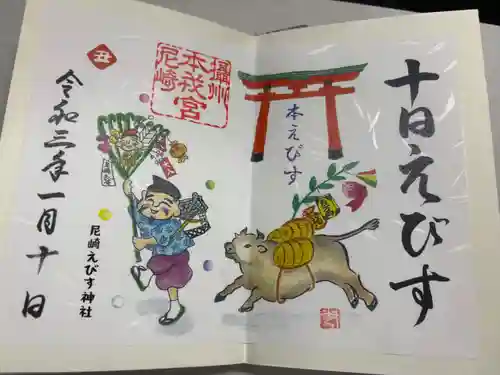 十日えびす
本えびす
攝州
本戎宮
尼崎
丑
令和三年一月十日
尼崎えびす神社